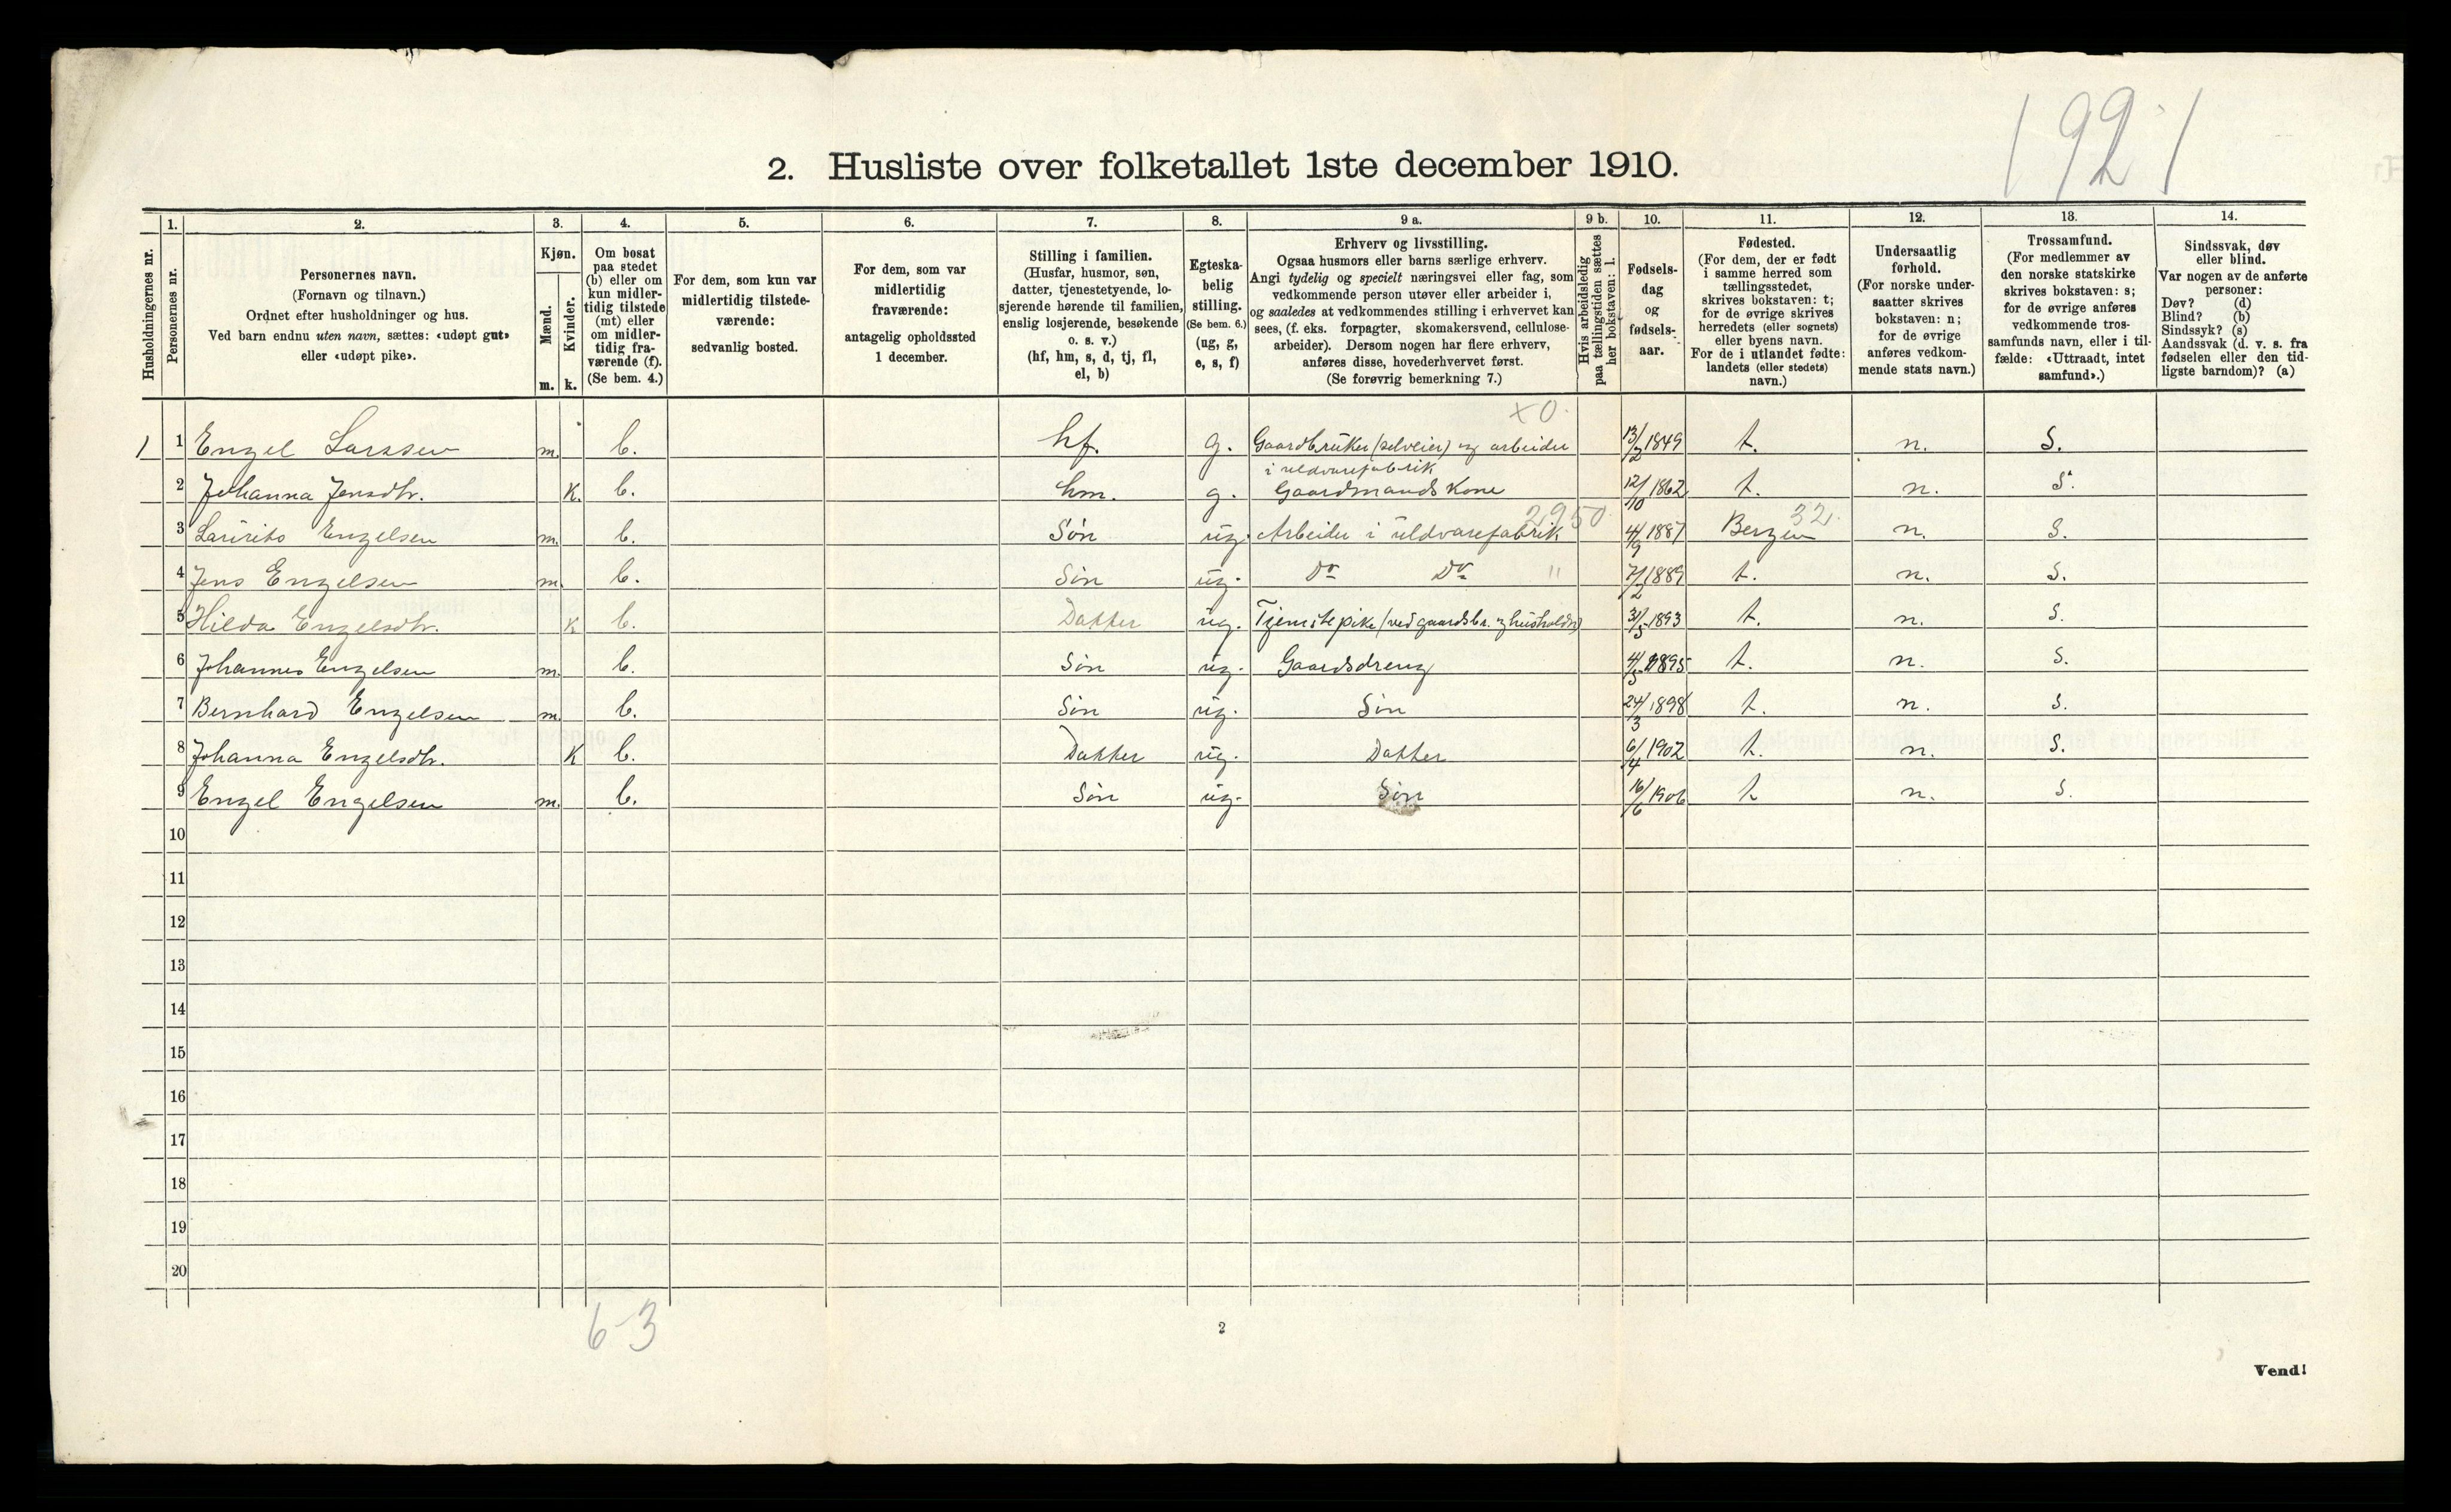 1921
2. Husliste over folketallet 1ste december 1910.
Husholdningernes nr.
1. Personernes nr.
2. Personernes navn. (Fornavn og tilnavn.) Ordnet efter husholdninger og hus. Ved barn endnu uten navn, sættes: «udøpt gut» eller «udøpt pike».
3. Kjøn. Mænd. m. Kvinder. k.
4. Om bosat paa stedet (b) eller om kun midlertidig tilstede (mt) eller om midlertidig fraværende (f). (Se bem. 4.)
5. For dem, som kun var midlertidig tilstedeværende: sedvanlig bosted.
6. For dem, som var midlertidig fraværende: antagelig opholdssted 1 december.
7. Stilling i familien. (Husfar, husmor, søn, datter, tjenestetyende, losjerende hørende til familien, enslig losjerende, besøkende o. s. v.) (hf, hm, s, d, tj, fl, el, b)
8. Egteskabelig stilling. (Se bem. 6.) (ug, g, e, s, f)
9 a. Erhverv og livsstilling. Ogsaa husmors eller barns særlige erhverv. Angi tydelig og specielt næringsvei eller fag, som vedkommende person utøver eller arbeider i, og saaledes at vedkommendes stilling i erhvervet kan sees, (f. eks. forpagter, skomakersvend, cellulosearbeider). Dersom nogen har flere erhverv, anføres disse, hovederhvervet først. (Se forøvrig bemerkning 7.)
9 b. Hvis arbeidsledig paa tællingstiden sættes her bokstaven: l.
10. Fødselsdag og fødselsaar.
11. Fødested. (For dem, der er født i samme herred som tællingsstedet, skrives bokstaven: t; for de øvrige skrives herredets (eller sognets) eller byens navn. For de i utlandet fødte: landets (eller stedets) navn.)
12. Undersaatlig forhold. (For norske undersaatter skrives bokstaven: n; for de øvrige anføres vedkommende stats navn.)
13. Trossamfund. (For medlemmer av den norske statskirke skrives bokstaven: s; for de øvrige anføres vedkommende trossamfunds navn, eller i tilfælde: «Uttraadt, intet samfund».)
14. Sindssvak, døv eller blind. Var nogen av de anførte personer: Døv? (d) Blind? (b) Sindssyk? (s) Aandssvak (d. v. s. fra fødselen eller den tidligste barndom)? (a)
x 0.
1 1 Engel Larssen m. b. hf. g. Gaardbruker (selveier) og arbeider i uldvarefabrik 13/2 1849 t. n. S.
2 Johanna Jensdtr. K. b. hm. g. Gaardmands Kone 12/10 1862 t. n. S.
2950. 32.
3 Laurits Engelsen m. b. Søn ug. Arbeider i uldvarefabrik 4/9 1887 Bergen n. S.
4 Jens Engelsen m. b. Søn ug. Do Do " 7/2 1889 t. n. S.
5 Hilda Engelsdtr. K b. Datter ug. Tjenstepike (ved gaardsbr. og husholdn) 31/5 1893 t. n. S.
6 Johannes Engelsen m. b. Søn ug. Gaardsdreng 4/5 1895 t. n. S.
7 Bernhard Engelsen m. b. Søn ug. Søn 24/3 1898 t. n. S.
8 Johanna Engelsdtr. K b. Datter ug. Datter 6/4 1902 t. n. S.
9 Engel Engelsen m. b. Søn ug. Søn 16/6 1906 t n. S.
10
11
12
13
14
15
16
17
18
19
20
6-3
2
Vend!